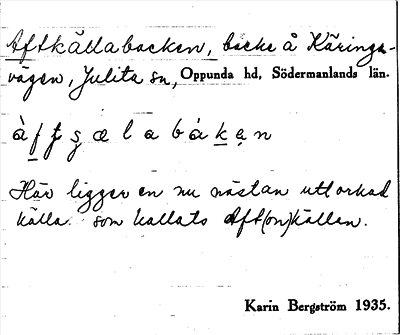 Aftkällabacken, backe å Käringa-
vägen, Julita sn, Oppunda hd, Södermanlands län.
àf̠ƫs̨ælabák̠ą̈n
Här ligger en nu nästan uttorkad
källa som kallats Aft(on)källan.
Karin Bergström 1935.